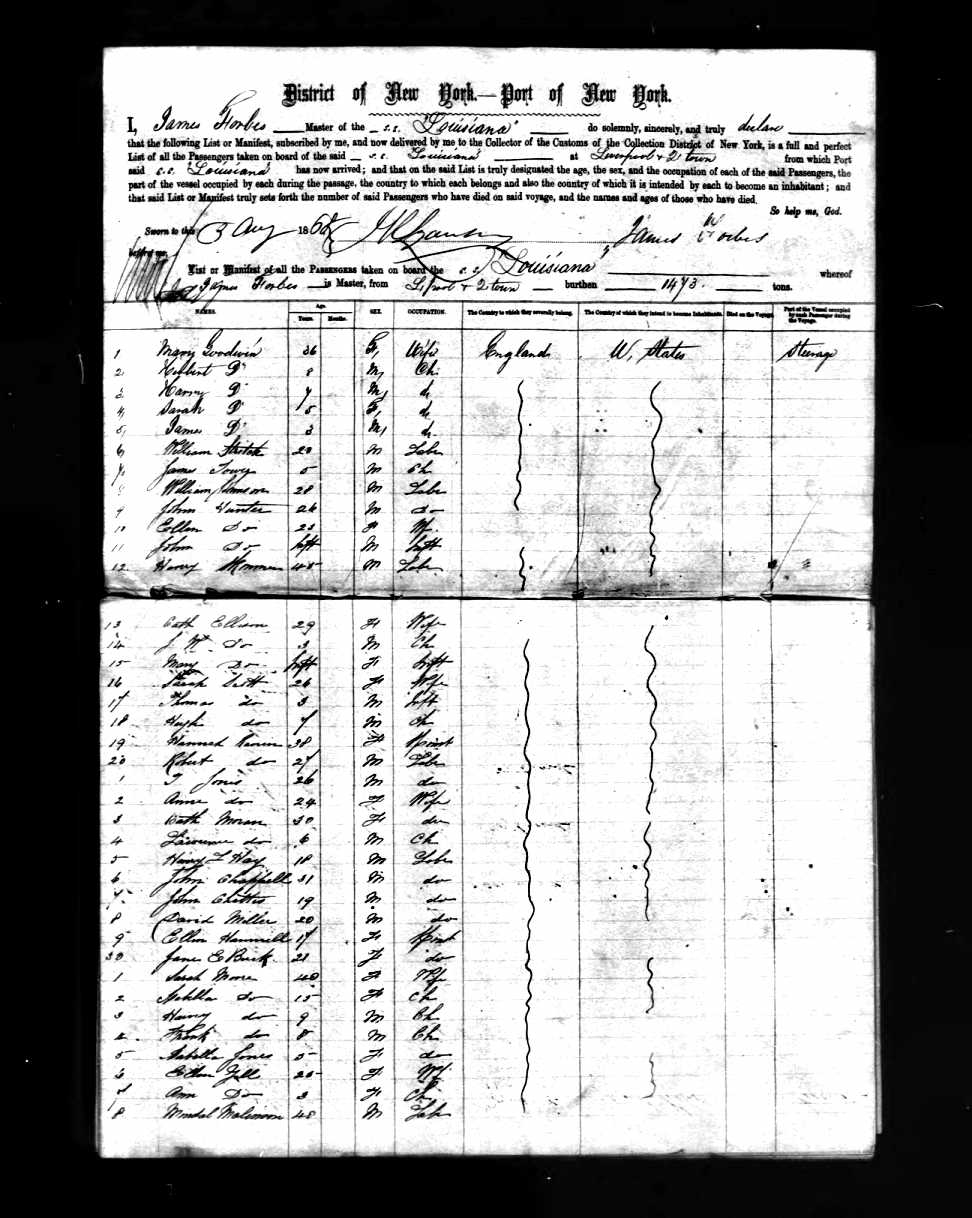 District of New York.—Port of New York.
I, James Forbes Master of the s.s. "Louisiana" do solemnly, sincerely, and truly declare
that the following List or Manifest, subscribed by me, and now delivered by me to the Collector of the Customs of the Collection District of New York, is a full and perfect
List of all the Passengers taken on board of the said s.s. "Louisiana" at Liverpool & 2 town from which Port
said s.s. "Louisiana" has now arrived; and that on the said List is truly designated the age, the sex, and the occupation of each of the said Passengers, the
part of the vessel occupied by each during the passage, the country to which each belongs and also the country of which it is intended by each to become an inhabitant; and
that said List or Manifest truly sets forth the number of said Passengers who have died on said voyage, and the names and ages of those who have died.
So help me, God.
Sworn to this 3 Aug 1868 James Forbes
before me,
List or Manifest of all the PASSENGERS taken on board the s.s. "Louisiana" whereof
James Forbes is Master, from L'pool & 2 town burthen 1473 tons.
NAMES. Age. Years. Months. SEX. OCCUPATION. The Country to which they severally belong. The Country of which they intend to become Inhabitants. Died on the Voyage. Part of the Vessel occupied by each Passenger during the Voyage.
1 Mary Goodwin 36 F, Wife England U, States Steerage
2 Herbert Do 8 M, Ch.
3 Harry Do 7 M, do
4 Sarah Do 5 F, do
5 James Do 3 M, do
6 William 20 M Labr
7 James 5 M Ch
8 William 28 M Labr
9 John Hunter 26 M do
10 Ellen Do 23 F Wf.
11 John Do Inft M Inft
12 Harry 45 M Labr
13 Cath Ellison 29 F Wife
14 J. Wm Do 3 M Ch
15 Mary Do Inft F Inft
16 Sarah 26 F Wife
17 Thomas do 3 M Inft
18 Hugh do 7 M Ch
19 Hannah 38 F Spinst
20 Robert do 27 M Labr
1 T Jones 26 M do
2 Anne do 24 F Wife
3 Cath Moran 30 F do
4 Lawrence do 6 M Ch
5 Henry F Hay 18 M Labr
6 John Chappell 31 M do
7 John 19 M do
8 David Miller 20 M do
9 Ellen 17 F Spinst
30 Jane E Buck 21 F do
1 Sarah Moore 40 F Wife
2 Do 15 F Ch
3 Harry do 9 M Ch
4 Frank do 8 M Ch
5 Isabella Jones 5 F do
6 Ellen Gill 25 F Wf
7 Ann Do 3 F Ch
8 48 M Labr